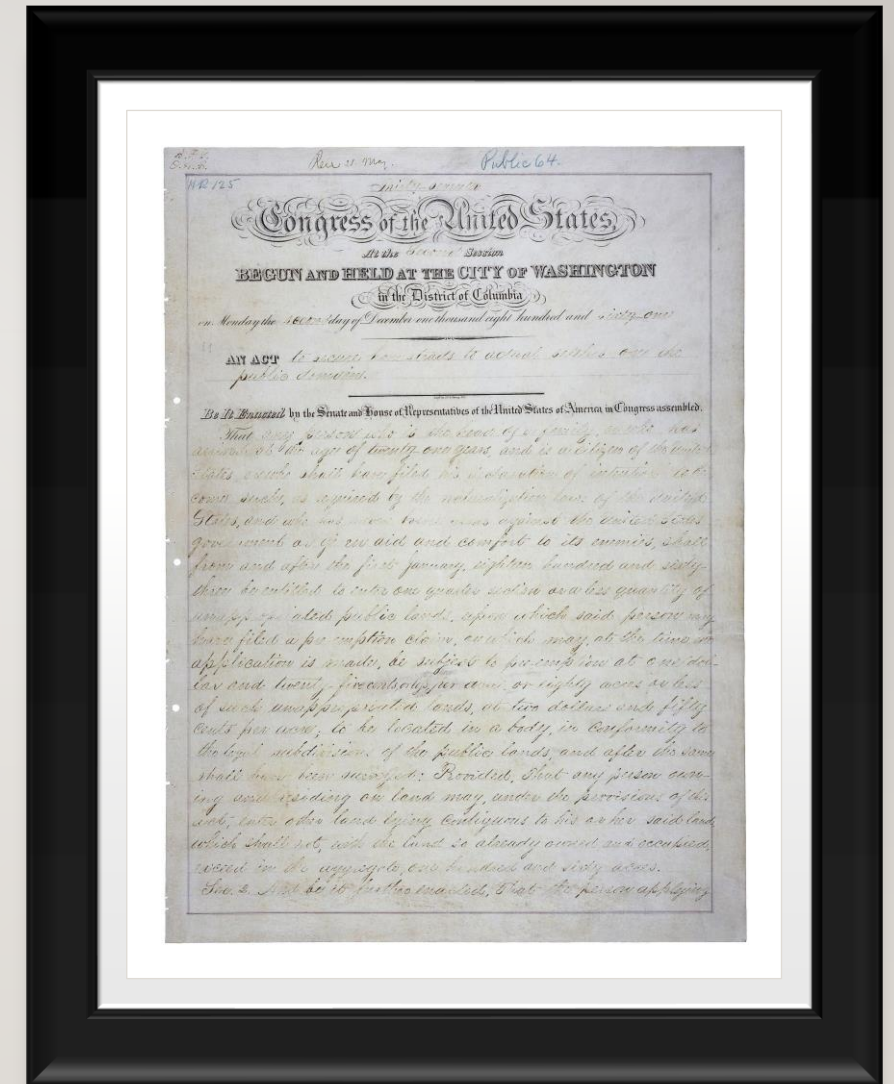 Public 64.
HR 125
Thirty-seventh
Congress of the United States,
At the Second Session
BEGUN AND HELD AT THE CITY OF WASHINGTON
in the District of Columbia
on Monday the second day of December one thousand eight hundred and sixty-one
AN ACT to secure homesteads to actual settlers on the
public domain.
Be It Enacted by the Senate and House of Representatives of the United States of America in Congress assembled.
That any person who is the head of a family, or who has
arrived at the age of twenty one years, and is a citizen of the united
States, or who shall have filed his declaration of intention to be-
come such, as required by the naturalization laws of the united
States, and who has never borne arms against the united States
government or given aid and comfort to its enemies, shall
from and after the first January, eighteen hundred and sixty-
three be entitled to enter one quarter section or a less quantity of
unappropriated public lands, upon which said person may
have filed a pre emption claim, or which may, at the time
application is made, be subject to pre-emption at one dol-
lar and twenty-five cents or less per acre; or eighty acres or less
of such unappropriated lands, at two dollars and fifty
cents per acre; to be located in a body, in conformity to
the legal subdivisions of the public lands, and after the same
shall have been surveyed: Provided, That any person own-
ing and residing on land may, under the provisions of this
act, enter other land lying contiguous to his or her said land,
which shall not, with the land so already owned and occupied,
exceed in the aggregate one hundred and sixty acres.
Sec. 2. And be it further enacted, That the person applying